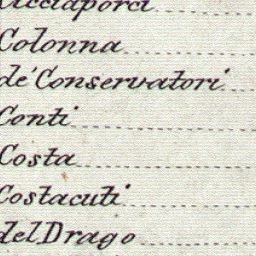 Colonna
de' Conservatori
Conti
Costa
Costacuti
del Drago